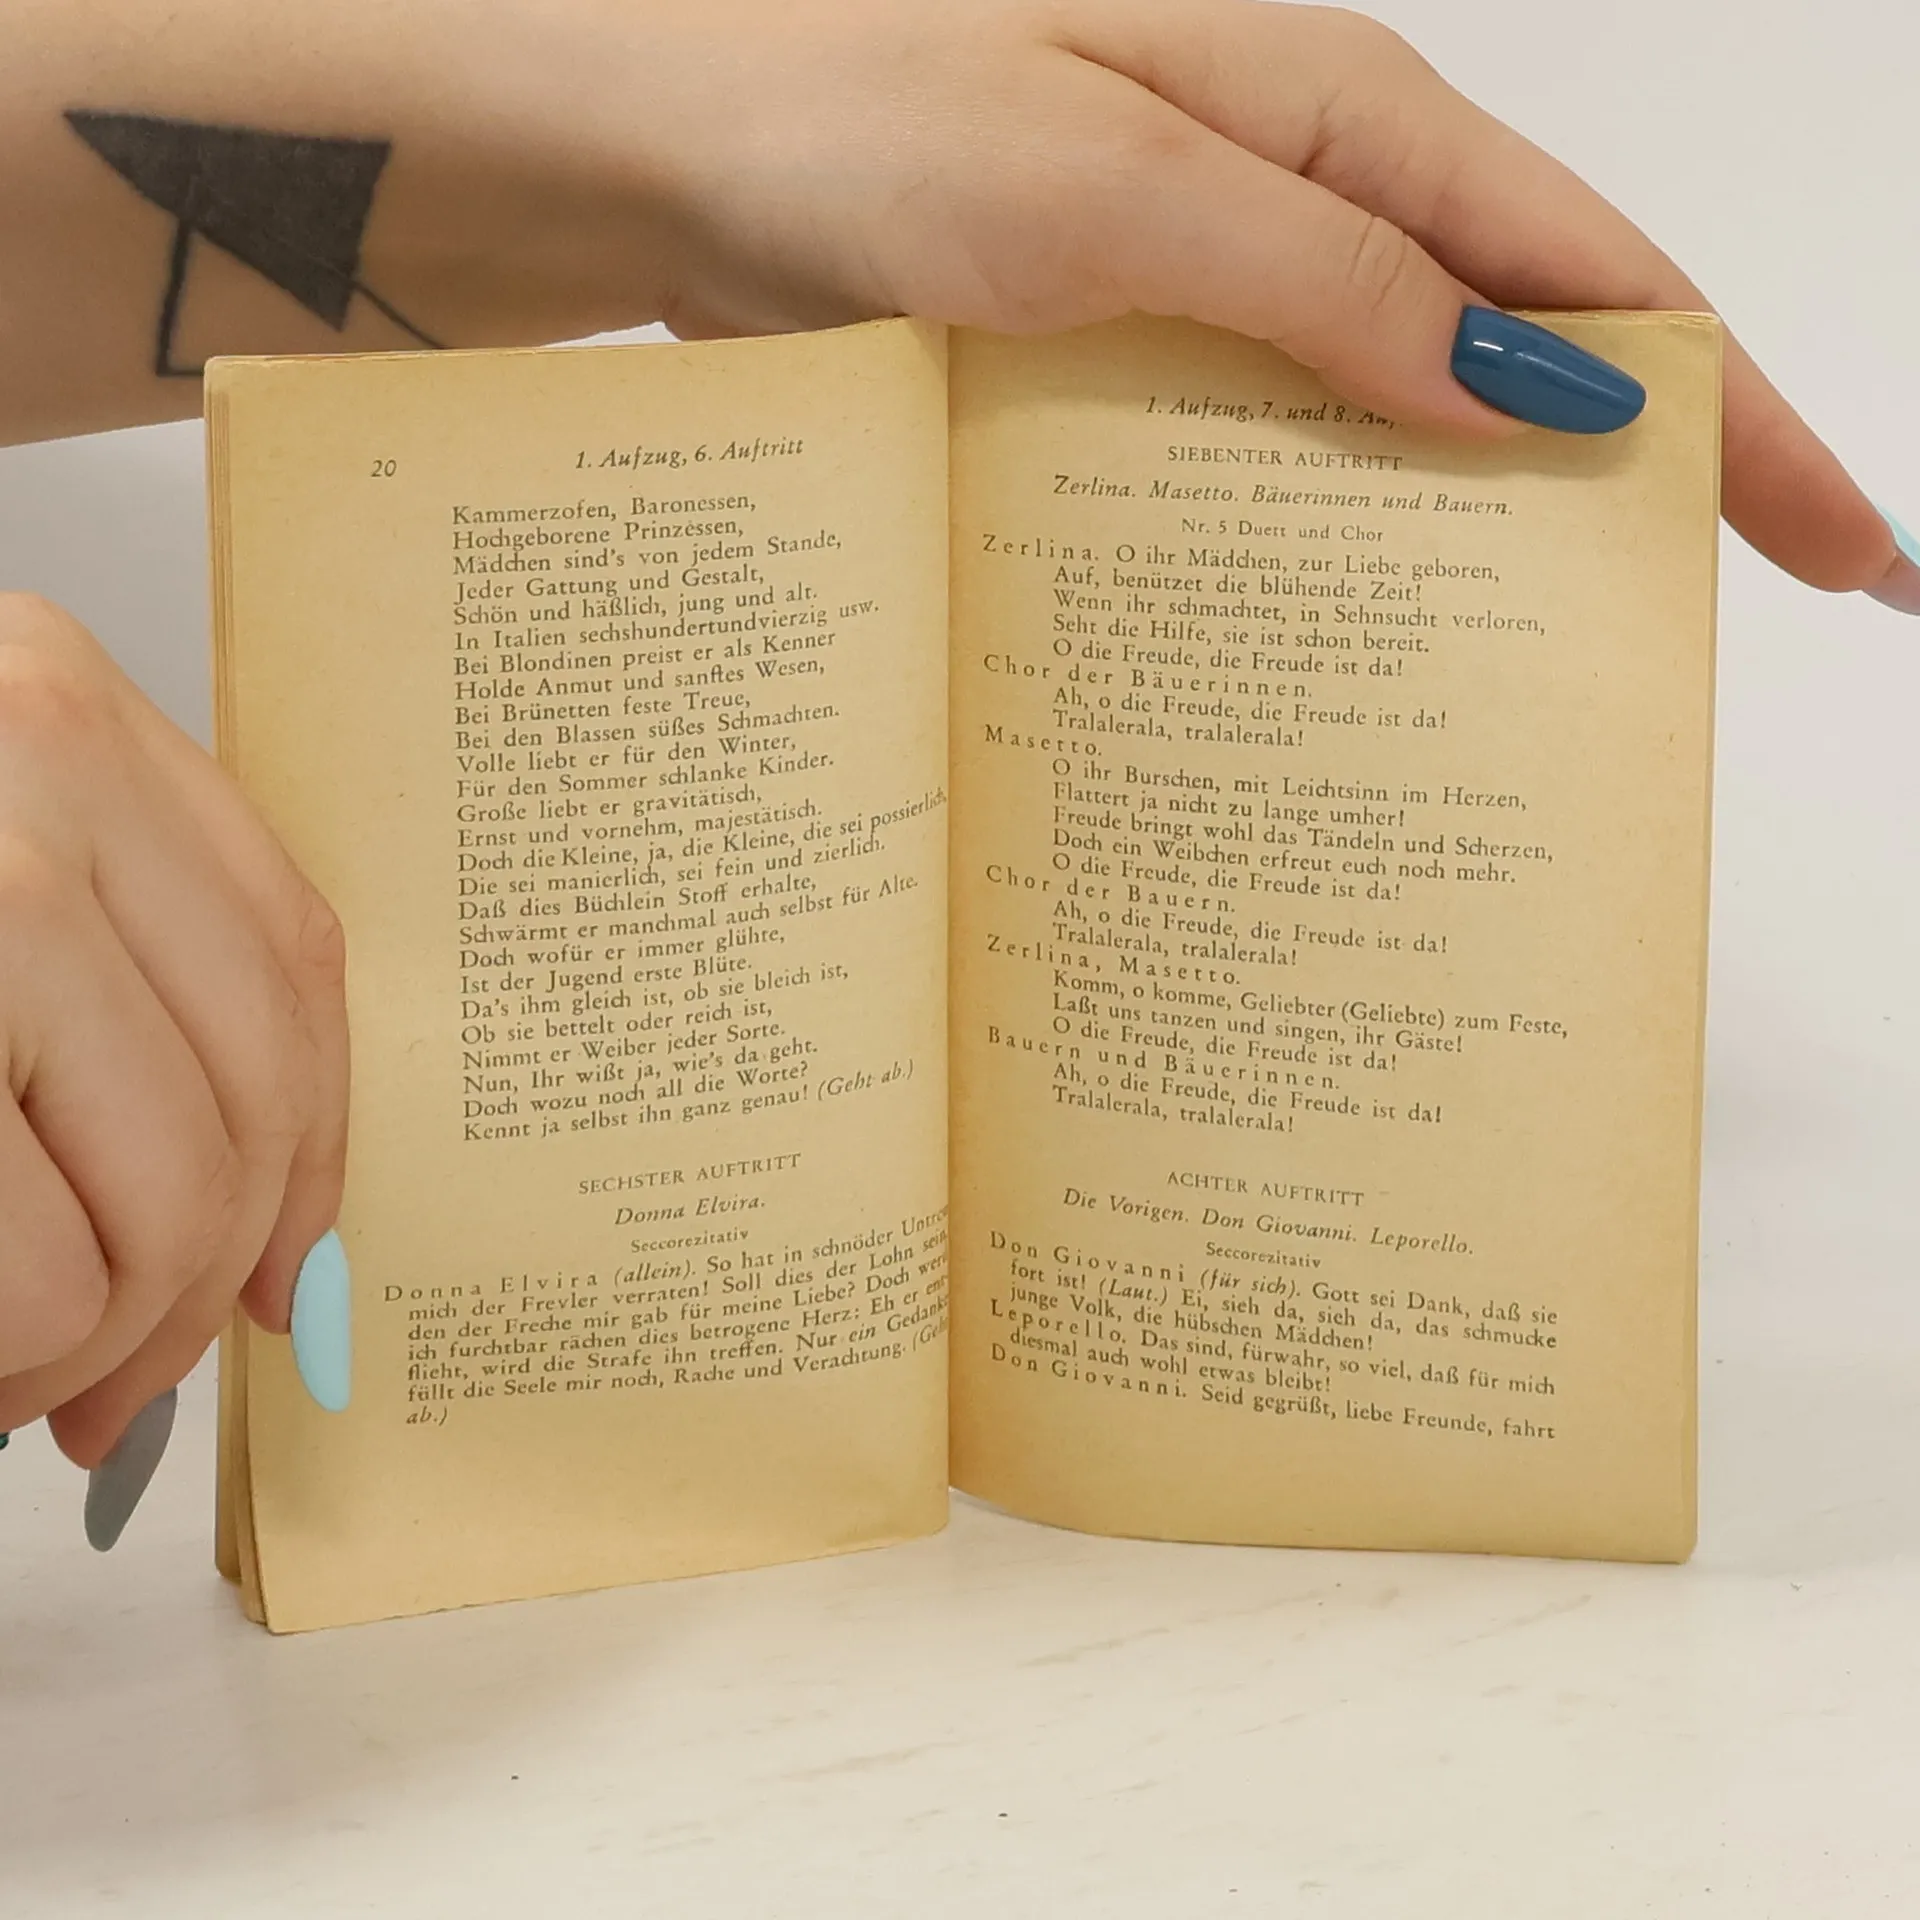 20
1. Aufzug, 6. Auftritt
Kammerzofen, Baronessen,
Hochgeborene Prinzessen,
Mädchen sind's von jedem Stande,
Jeder Gattung und Gestalt,
Schön und häßlich, jung und alt.
In Italien sechshundertundvierzig usw.
Bei Blondinen preist er als Kenner
Holde Anmut und sanftes Wesen,
Bei Brünetten feste Treue,
Bei den Blassen süßes Schmachten.
Volle liebt er für den Winter,
Für den Sommer schlanke Kinder.
Große liebt er gravitätisch,
Ernst und vornehm, majestätisch.
Doch die Kleine, ja, die Kleine, die sei possierlich,
Die sei manierlich, sei fein und zierlich.
Daß dies Büchlein Stoff erhalte,
Schwärmt er manchmal auch selbst für Alte.
Doch wofür er immer glühte,
Ist der Jugend erste Blüte.
Da's ihm gleich ist, ob sie bleich ist,
Ob sie bettelt oder reich ist,
Nimmt er Weiber jeder Sorte.
Nun, Ihr wißt ja, wie's da geht.
Doch wozu noch all die Worte?
Kennt ja selbst ihn ganz genau! (Geht ab.)
SECHSTER AUFTRITT
Donna Elvira.
Seccorezitativ
Donna Elvira (allein). So hat in schnöder
mich der Frevler verraten! Soll dies der Lohn sein,
den der Freche mir gab für meine Liebe? Doch
ich furchtbar rächen dies betrogene Herz: Eh er ent-
flieht, wird die Strafe ihn treffen. Nur ein
füllt die Seele mir noch, Rache und Verachtung. (Geht
ab.)
1. Aufzug, 7. und 8.
SIEBENTER AUFTRITT
Zerlina. Masetto. Bäuerinnen und Bauern.
Nr. 5 Duett und Chor
Zerlina. O ihr Mädchen, zur Liebe geboren,
Auf, benützet die blühende Zeit!
Wenn ihr schmachtet, in Sehnsucht verloren,
Seht die Hilfe, sie ist schon bereit.
O die Freude, die Freude ist da!
Chor der Bäuerinnen.
Ah, o die Freude, die Freude ist da!
Tralalerala, tralalerala!
Masetto.
O ihr Burschen, mit Leichtsinn im Herzen,
Flattert ja nicht zu lange umher!
Freude bringt wohl das Tändeln und Scherzen,
Doch ein Weibchen erfreut euch noch mehr.
O die Freude, die Freude ist da!
Chor der Bauern.
Ah, o die Freude, die Freude ist da!
Tralalerala, tralalerala!
Zerlina, Masetto.
Komm, o komme, Geliebter (Geliebte) zum Feste,
Laßt uns tanzen und singen, ihr Gäste!
O die Freude, die Freude ist da!
Bauern und Bäuerinnen.
Ah, o die Freude, die Freude ist da!
Tralalerala, tralalerala!
ACHTER AUFTRITT
Die Vorigen. Don Giovanni. Leporello.
Seccorezitativ
Don Giovanni (für sich). Gott sei Dank, daß sie
fort ist! (Laut.) Ei, sieh da, sieh da, das schmucke
junge Volk, die hübschen Mädchen!
Leporello. Das sind, fürwahr, so viel, daß für mich
diesmal auch wohl etwas bleibt!
Don Giovanni. Seid gegrüßt, liebe Freunde, fahrt